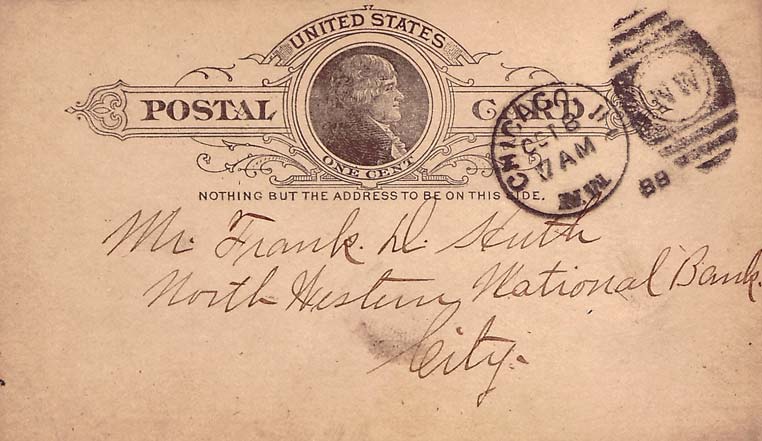 UNITED STATES
POSTAL CARD
ONE CENT
NOTHING BUT THE ADDRESS TO BE ON THIS SIDE.
CHICAGO, ILL
OCT 8
7 AM
N.W.
N W
88
Mr. Frank. D. Huth
North Western National Bank.
City.